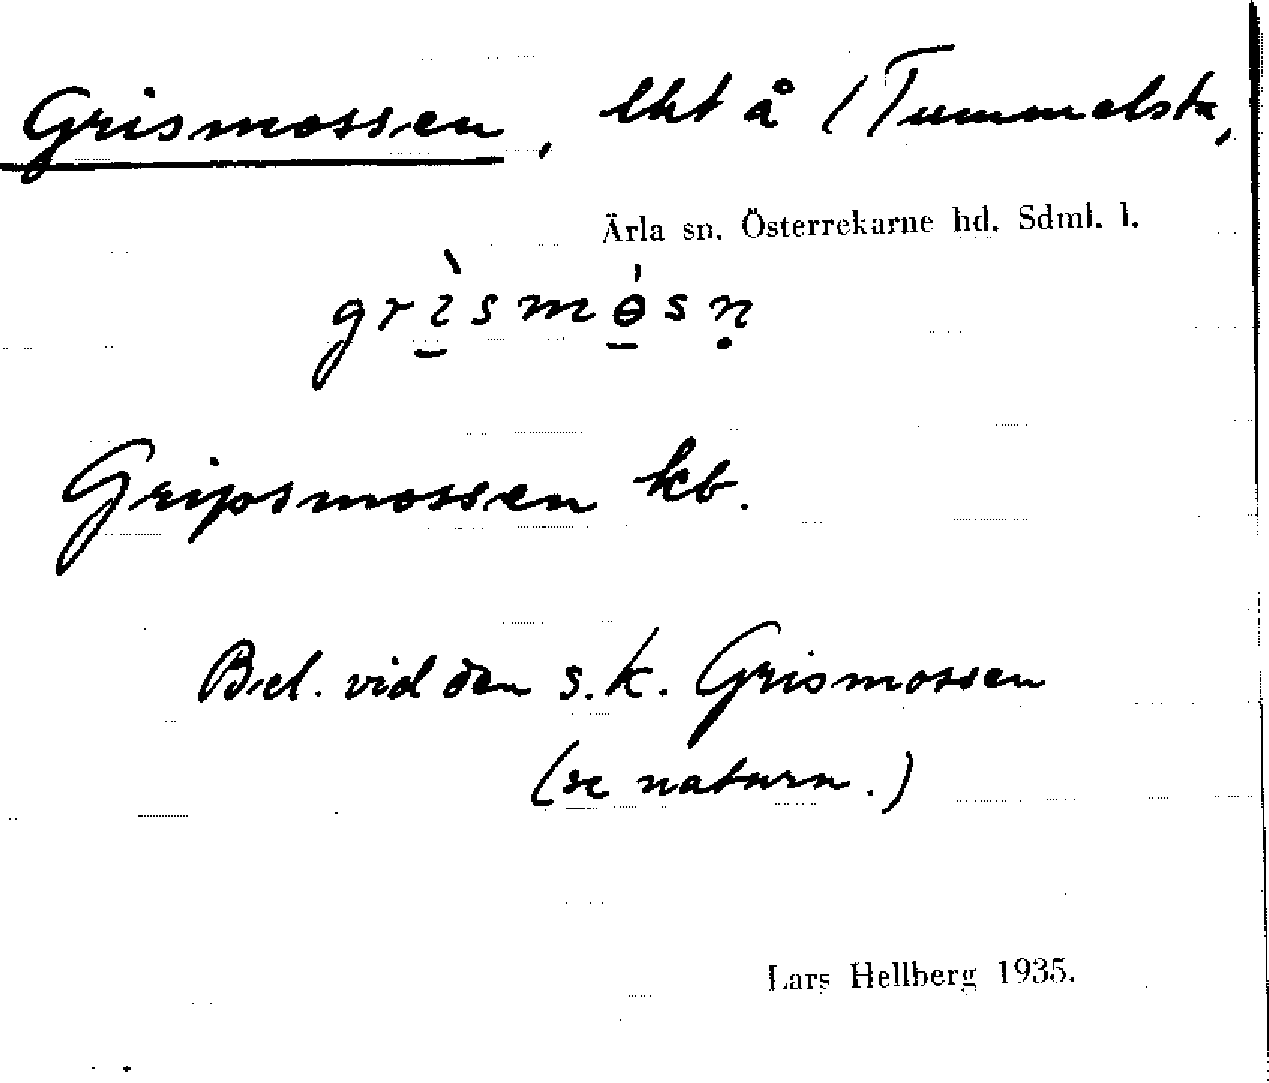 Grismossen, lht å /Tummelsta,
Ärla sn. Österrekarne hd. Sdml. l.
grı̱̀smɵ̱́sṇ
Gripsmossen kb.
Bel. vid den s.k. Grismossen
(se naturn.)
Lars Hellberg 1935.